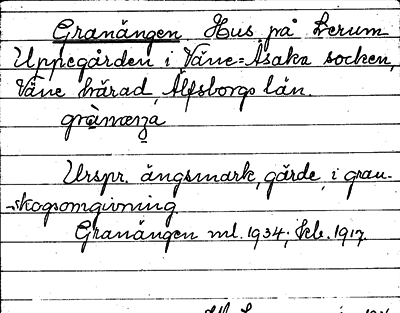 Granängen Hus på Lerum
Uppegården i Väne-Åsaka socken,
Väne härad, Älfsborgs län.
grànæŋa
Urspr. ängsmark, gärde, i gran-
skogsomgivning.
Granängen ml. 1934; kb. 1917.